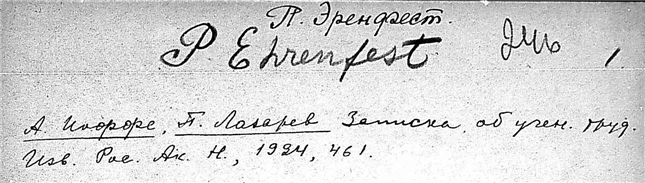 П. Эренфест.
P. Ehrenfest.
А. Иоффе, П. Лазарев Записка об учен. труд.
Изв. Рос. Ак. Н., 1924, 461.